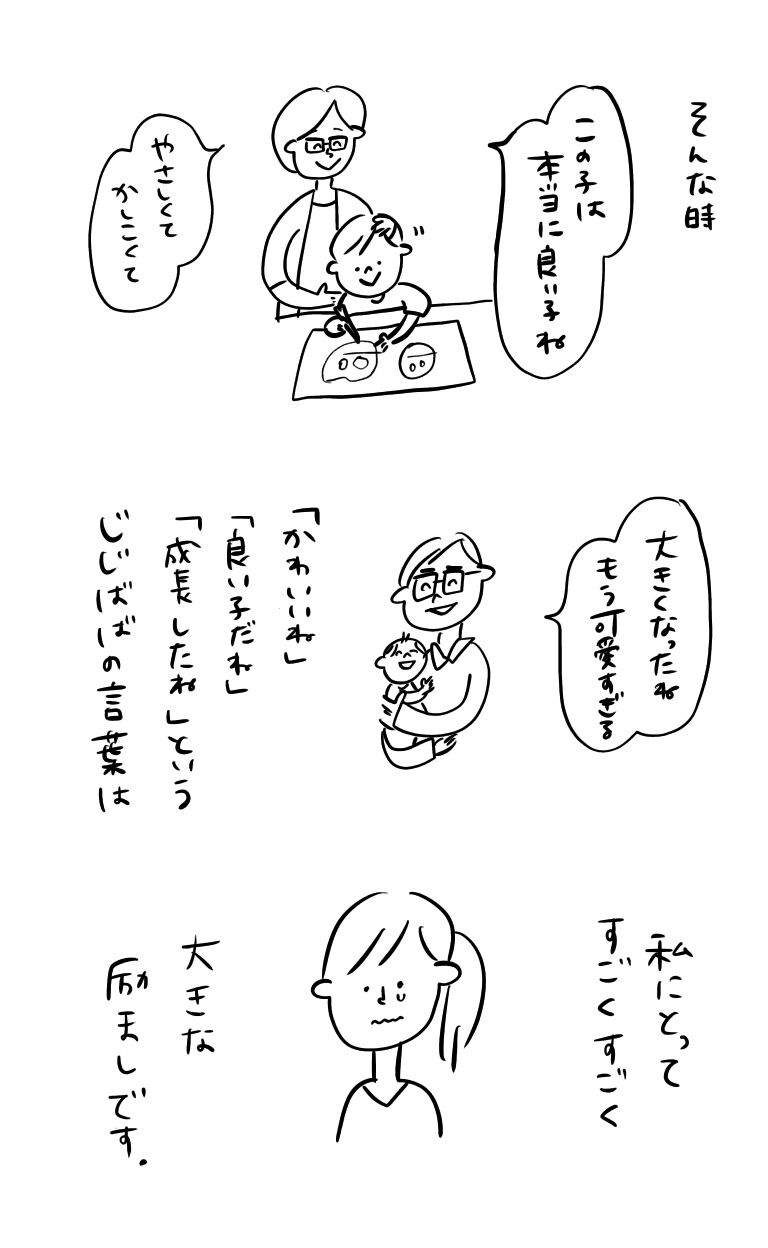 そんな時
この子は
本当に良い子ね
やさしくて
かしこくて
大きくなったね
もう可愛すぎる
「かわいいね」
「良い子だね」
「成長したね」という
じじばばの言葉は
私にとって
すごくすごく
大きな
励ましです.